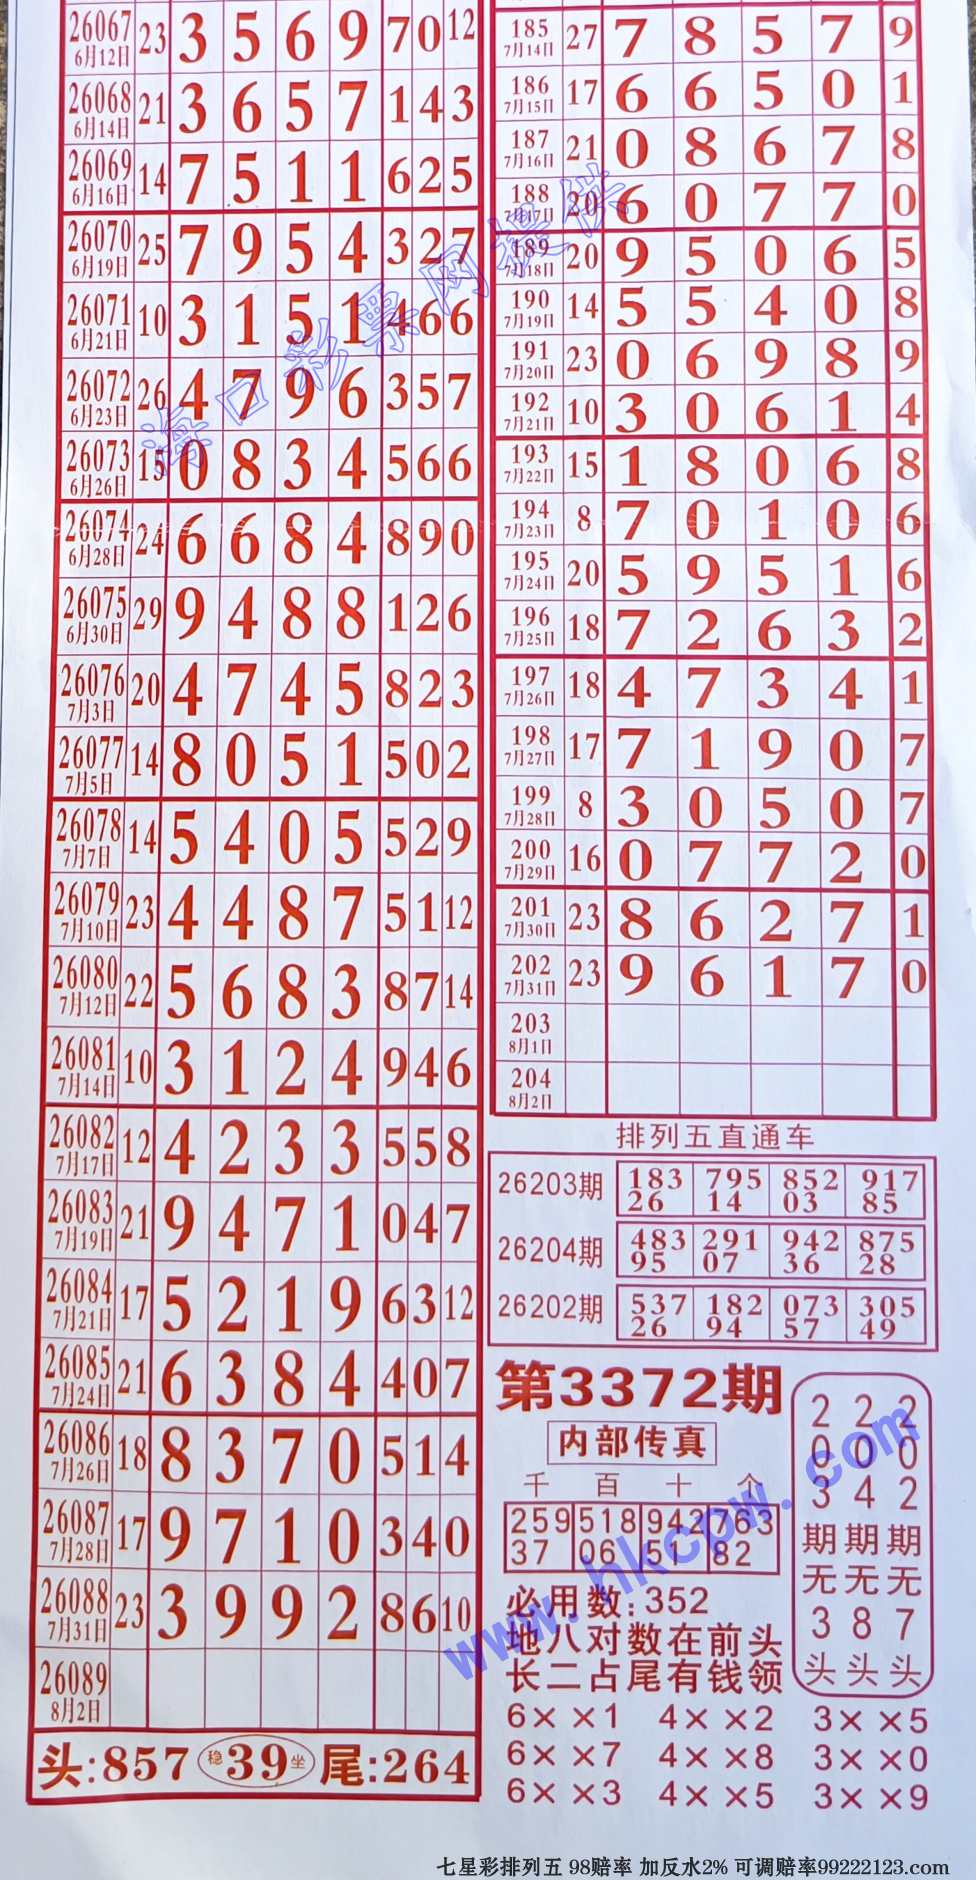 26067 6月12日 23 3 5 6 9 7 0 12
26068 6月14日 21 3 6 5 7 1 4 3
26069 6月16日 14 7 5 1 1 6 2 5
26070 6月19日 25 7 9 5 4 3 2 7
26071 6月21日 10 3 1 5 1 4 6 6
26072 6月23日 26 4 7 9 6 3 5 7
26073 6月26日 15 0 8 3 4 5 6 6
26074 6月28日 24 6 6 8 4 8 9 0
26075 6月30日 29 9 4 8 8 1 2 6
26076 7月3日 20 4 7 4 5 8 2 3
26077 7月5日 14 8 0 5 1 5 0 2
26078 7月7日 14 5 4 0 5 5 2 9
26079 7月10日 23 4 4 8 7 5 1 12
26080 7月12日 22 5 6 8 3 8 7 14
26081 7月14日 10 3 1 2 4 9 4 6
26082 7月17日 12 4 2 3 3 5 5 8
26083 7月19日 21 9 4 7 1 0 4 7
26084 7月21日 17 5 2 1 9 6 3 12
26085 7月24日 21 6 3 8 4 4 0 7
26086 7月26日 18 8 3 7 0 5 1 4
26087 7月28日 17 9 7 1 0 3 4 0
26088 7月31日 23 3 9 9 2 8 6 10
26089 8月2日
头:857 稳39坐 尾:264
185 7月14日 27 7 8 5 7 9
186 7月15日 17 6 6 5 0 1
187 7月16日 21 0 8 6 7 8
188 7月17日 20 6 0 7 7 0
189 7月18日 20 9 5 0 6 5
190 7月19日 14 5 5 4 0 8
191 7月20日 23 0 6 9 8 9
192 7月21日 10 3 0 6 1 4
193 7月22日 15 1 8 0 6 8
194 7月23日 8 7 0 1 0 6
195 7月24日 20 5 9 5 1 6
196 7月25日 18 7 2 6 3 2
197 7月26日 18 4 7 3 4 1
198 7月27日 17 7 1 9 0 7
199 7月28日 8 3 0 5 0 7
200 7月29日 16 0 7 7 2 0
201 7月30日 23 8 6 2 7 1
202 7月31日 23 9 6 1 7 0
203 8月1日
204 8月2日
排列五直通车
26203期 183 795 852 917
26 14 03 85
26204期 483 291 942 875
95 07 36 28
26202期 537 182 073 305
26 94 57 49
第3372期
内部传真
千 百 十 个
259 518 942 763
37 06 51 82
必用数:352
地八对数在前头
长二占尾有钱领
203期无3头
204期无8头
202期无7头
6××1 4××2 3××5
6××7 4××8 3××0
6××3 4××5 3××9
海口彩票网提供
www.hkcpw.com
七星彩排列五 98赔率 加反水2% 可调赔率99222123.com